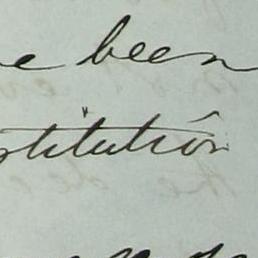 e been
stitution